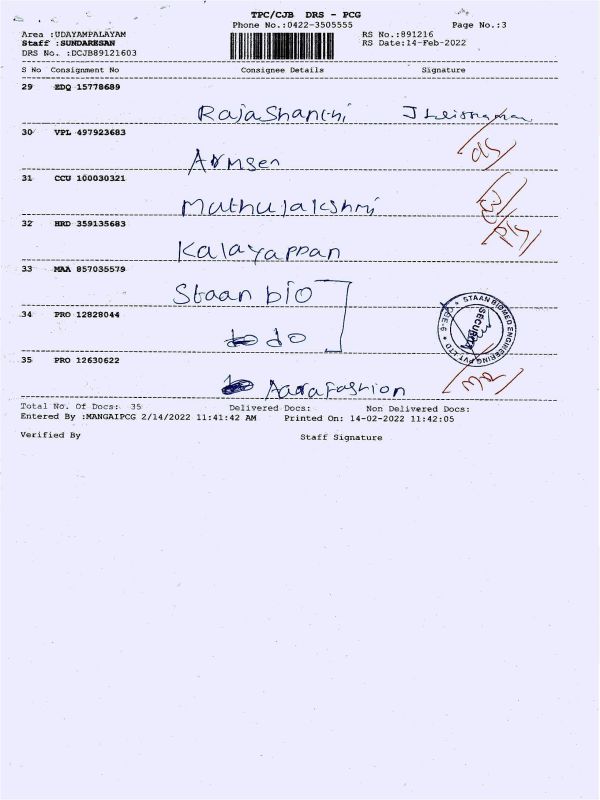 TPC/CJB DRS - PCG
Phone No.:0422-3505555 Page No.:3
Area :UDAYAMPALAYAM RS No.:891216
Staff :SUNDARESAN RS Date:14-Feb-2022
DRS No. :DCJB89121603
S No Consignment No Consignee Details Signature
29 EDQ 15778689
Rajashanthi
30 VPL 497923683
31 CCU 100030321
Muthulakshmi
32 HRD 359135683
Kalayappan
33 MAA 857035579
Staan bio
34 PRO 12828044
do
STAAN BIOMED ENGINEERING PVT LTD
SECURITY
35 PRO 12630622
Aarafashion
Total No. Of Docs: 35 Delivered Docs: Non Delivered Docs:
Entered By :MANGAIPCG 2/14/2022 11:41:42 AM Printed On: 14-02-2022 11:42:05
Verified By Staff Signature